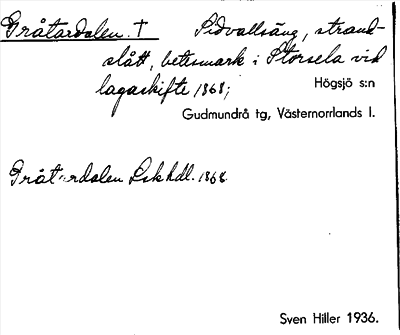 Gråtardalen. † Sidvallsäng, strand-
slått, betesmark i Storsela vid
lagaskifte 1868;
Högsjö s:n
Gudmundrå tg, Västernorrlands l.
Gråtardalen Lskhdl. 1868.
Sven Hiller 1936.